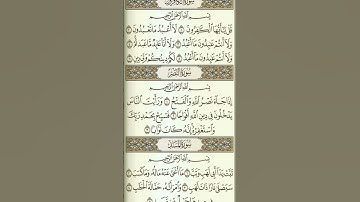 سورة الكافرون
بسم الله الرحمن الرحيم
قل يا أيها الكافرون ۝ لا أعبد ما تعبدون ۝
ولا أنتم عابدون ما أعبد ۝ ولا أنا عابد ما عبدتم ۝
ولا أنتم عابدون ما أعبد ۝ لكم دينكم ولي دين ۝
سورة النصر
بسم الله الرحمن الرحيم
إذا جاء نصر الله والفتح ۝ ورأيت الناس
يدخلون في دين الله أفواجا ۝ فسبح بحمد ربك
واستغفره إنه كان توابا ۝
سورة المسد
بسم الله الرحمن الرحيم
تبت يدا أبي لهب وتب ۝ ما أغنى عنه ماله وما كسب ۝
سيصلى نارا ذات لهب ۝ وامرأته حمالة الحطب ۝